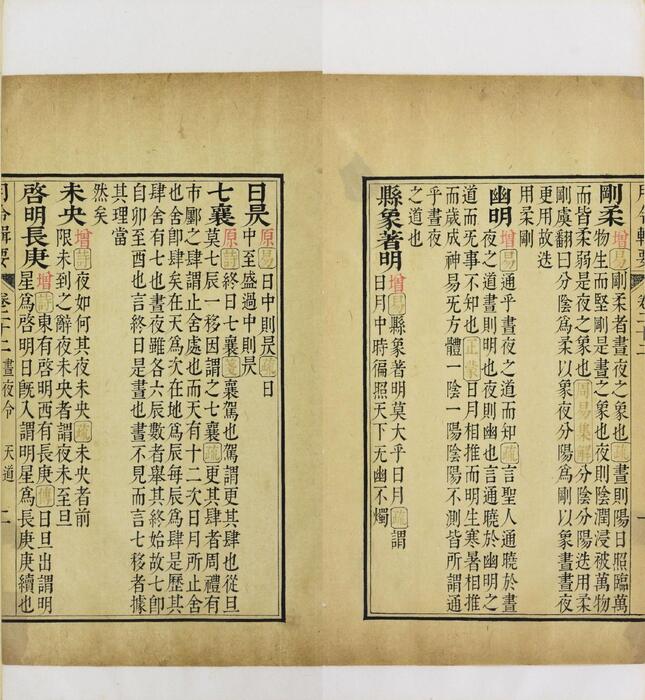 月令輯要 卷二十二 一
剛柔增易剛柔者晝夜之象也疏晝則陽日照臨萬
物生而堅剛是晝之象也夜則陰潤浸被萬物
而皆柔弱是夜之象也周易集解分陰分陽迭用柔
剛虞翻曰分陰爲柔以象夜分陽爲剛以象晝晝夜
更用故迭
用柔剛
幽明增易通乎晝夜之道而知疏言聖人通曉於晝
夜之道晝則明也夜則幽也言通曉於幽明之
道而无事不知也正蒙日月相推而明生寒暑相推
而歲成神易无方體一陰一陽陰陽不測皆所謂通
乎晝夜
之道也
縣象著明增易縣象著明莫大乎日月疏謂
日月中時徧照天下无幽不燭
日昃原易日中則昃疏日
中至盛過中則昃
七襄原詩終日七襄箋襄駕也駕謂更其肆也從旦
莫七辰一移因謂之七襄疏更其肆者周禮有
市鄽之肆謂止舍處也而天有十二次日月所止舍
也舍卽肆矣在天爲次在地爲辰每辰爲肆是歷其
肆舍有七也晝夜雖各六辰數者舉其終始故七卽
自卯至酉也言終日是晝也晝不見而言七移者據
其理當
然矣
未央增詩夜如何其夜未央疏未央者前
限未到之辭夜未央者謂夜未至旦
啓明長庚增詩東有啓明西有長庚傳日旦出謂明
星爲啓明日旣入謂明星爲長庚庚續也
月令輯要 卷二十二 晝夜令 天道 二